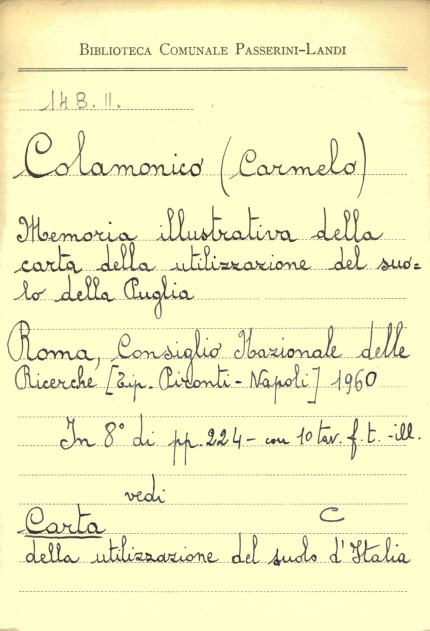 BIBLIOTECA COMUNALE PASSERINI-LANDI
14 B. II.
Colamonico (Carmelo)
Memoria illustrativa della
carta della utilizzazione del suo=
lo della Puglia
Roma, Consiglio Nazionale delle
Ricerche [Tip. Pironti - Napoli] 1960
In 8° di pp. 224 - con 10 tav. f. t. - ill.
vedi
C
Carta
della utilizzazione del suolo d'Italia